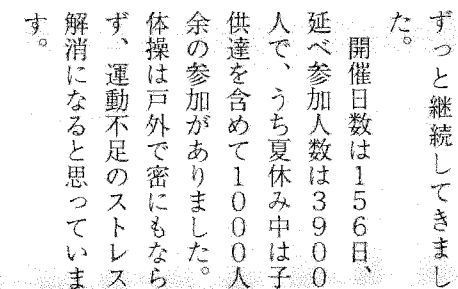 ずっと継続してきまし
た。
　開催日数は１５６日、
延べ参加人数は３９００
人で、うち夏休み中は子
供達を含めて１０００人
余の参加がありました。
体操は戸外で密にもなら
ず、運動不足のストレス
解消になると思っていま
す。